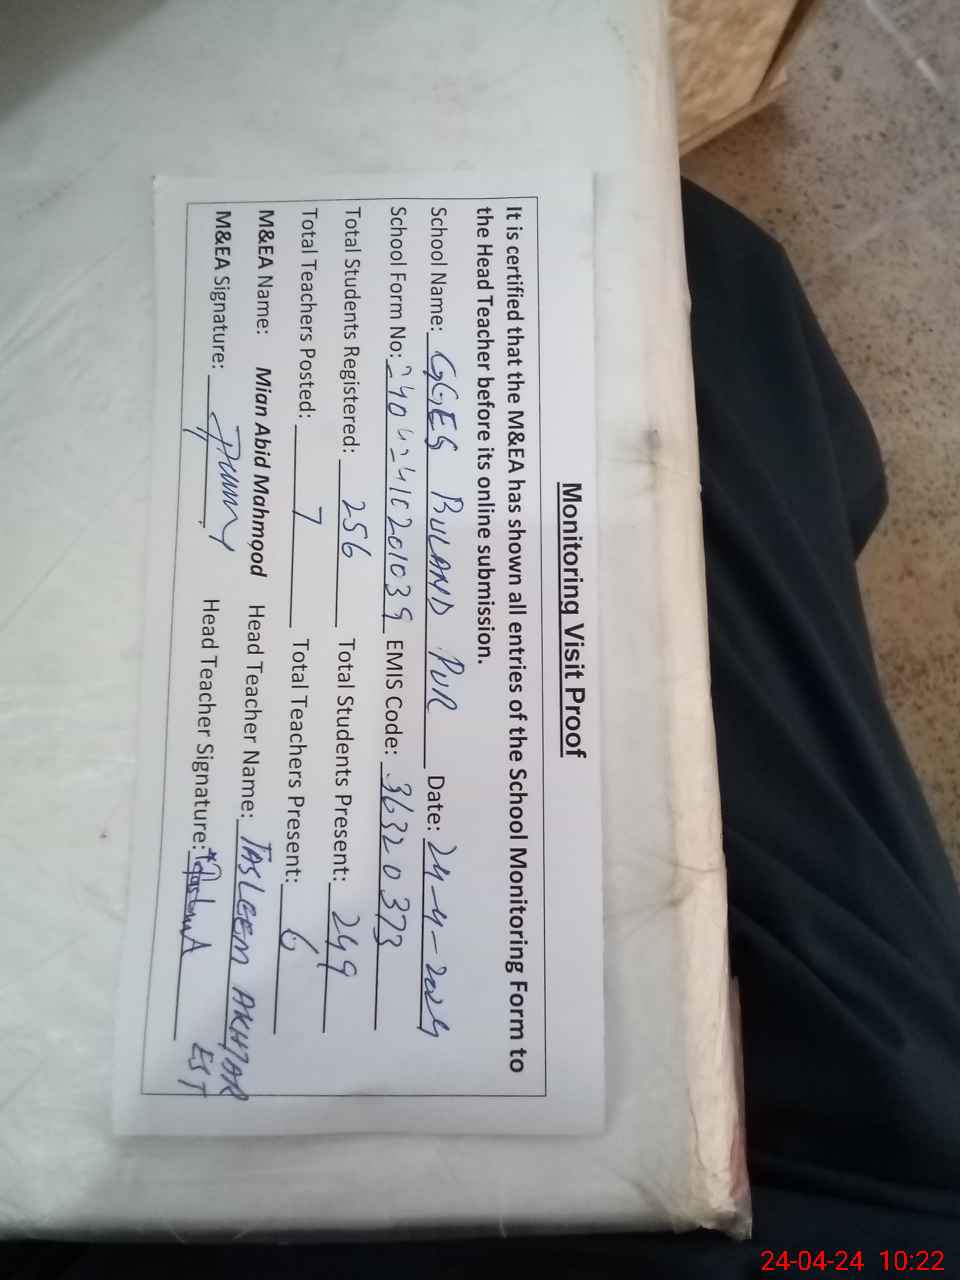 Monitoring Visit Proof
It is certified that the M&EA has shown all entries of the School Monitoring Form to
the Head Teacher before its online submission.
School Name: GGES BULAND PUR Date: 24-4-2024
School Form No: EMIS Code: 36320373
Total Students Registered: 256 Total Students Present: 249
Total Teachers Posted: 7 Total Teachers Present: 6
M&EA Name: Mian Abid Mahmood Head Teacher Name: TASLEEM AKHTAR
M&EA Signature: Head Teacher Signature: EST
24-04-24 10:22